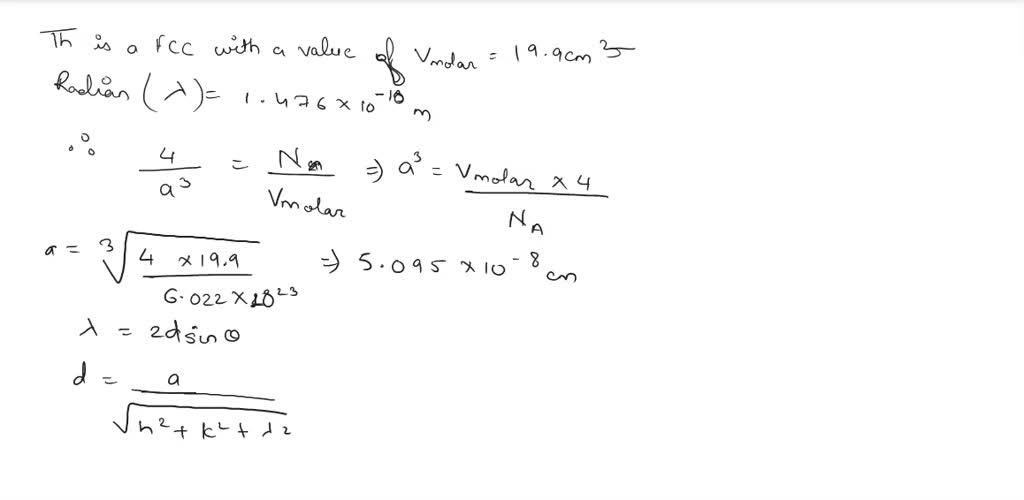 Th is a FCC with a value of Vmolar = 19.9cm³
Radian (λ) = 1.476 × 10⁻¹⁰ m
∴ 4/a³ = N_A/Vmolar ⇒ a³ = Vmolar × 4/N_A
a = ∛(4 × 19.9/6.022 × 10²³) ⇒ 5.095 × 10⁻⁸ cm
λ = 2d sin θ
d = a/√(h² + k² + λ²)